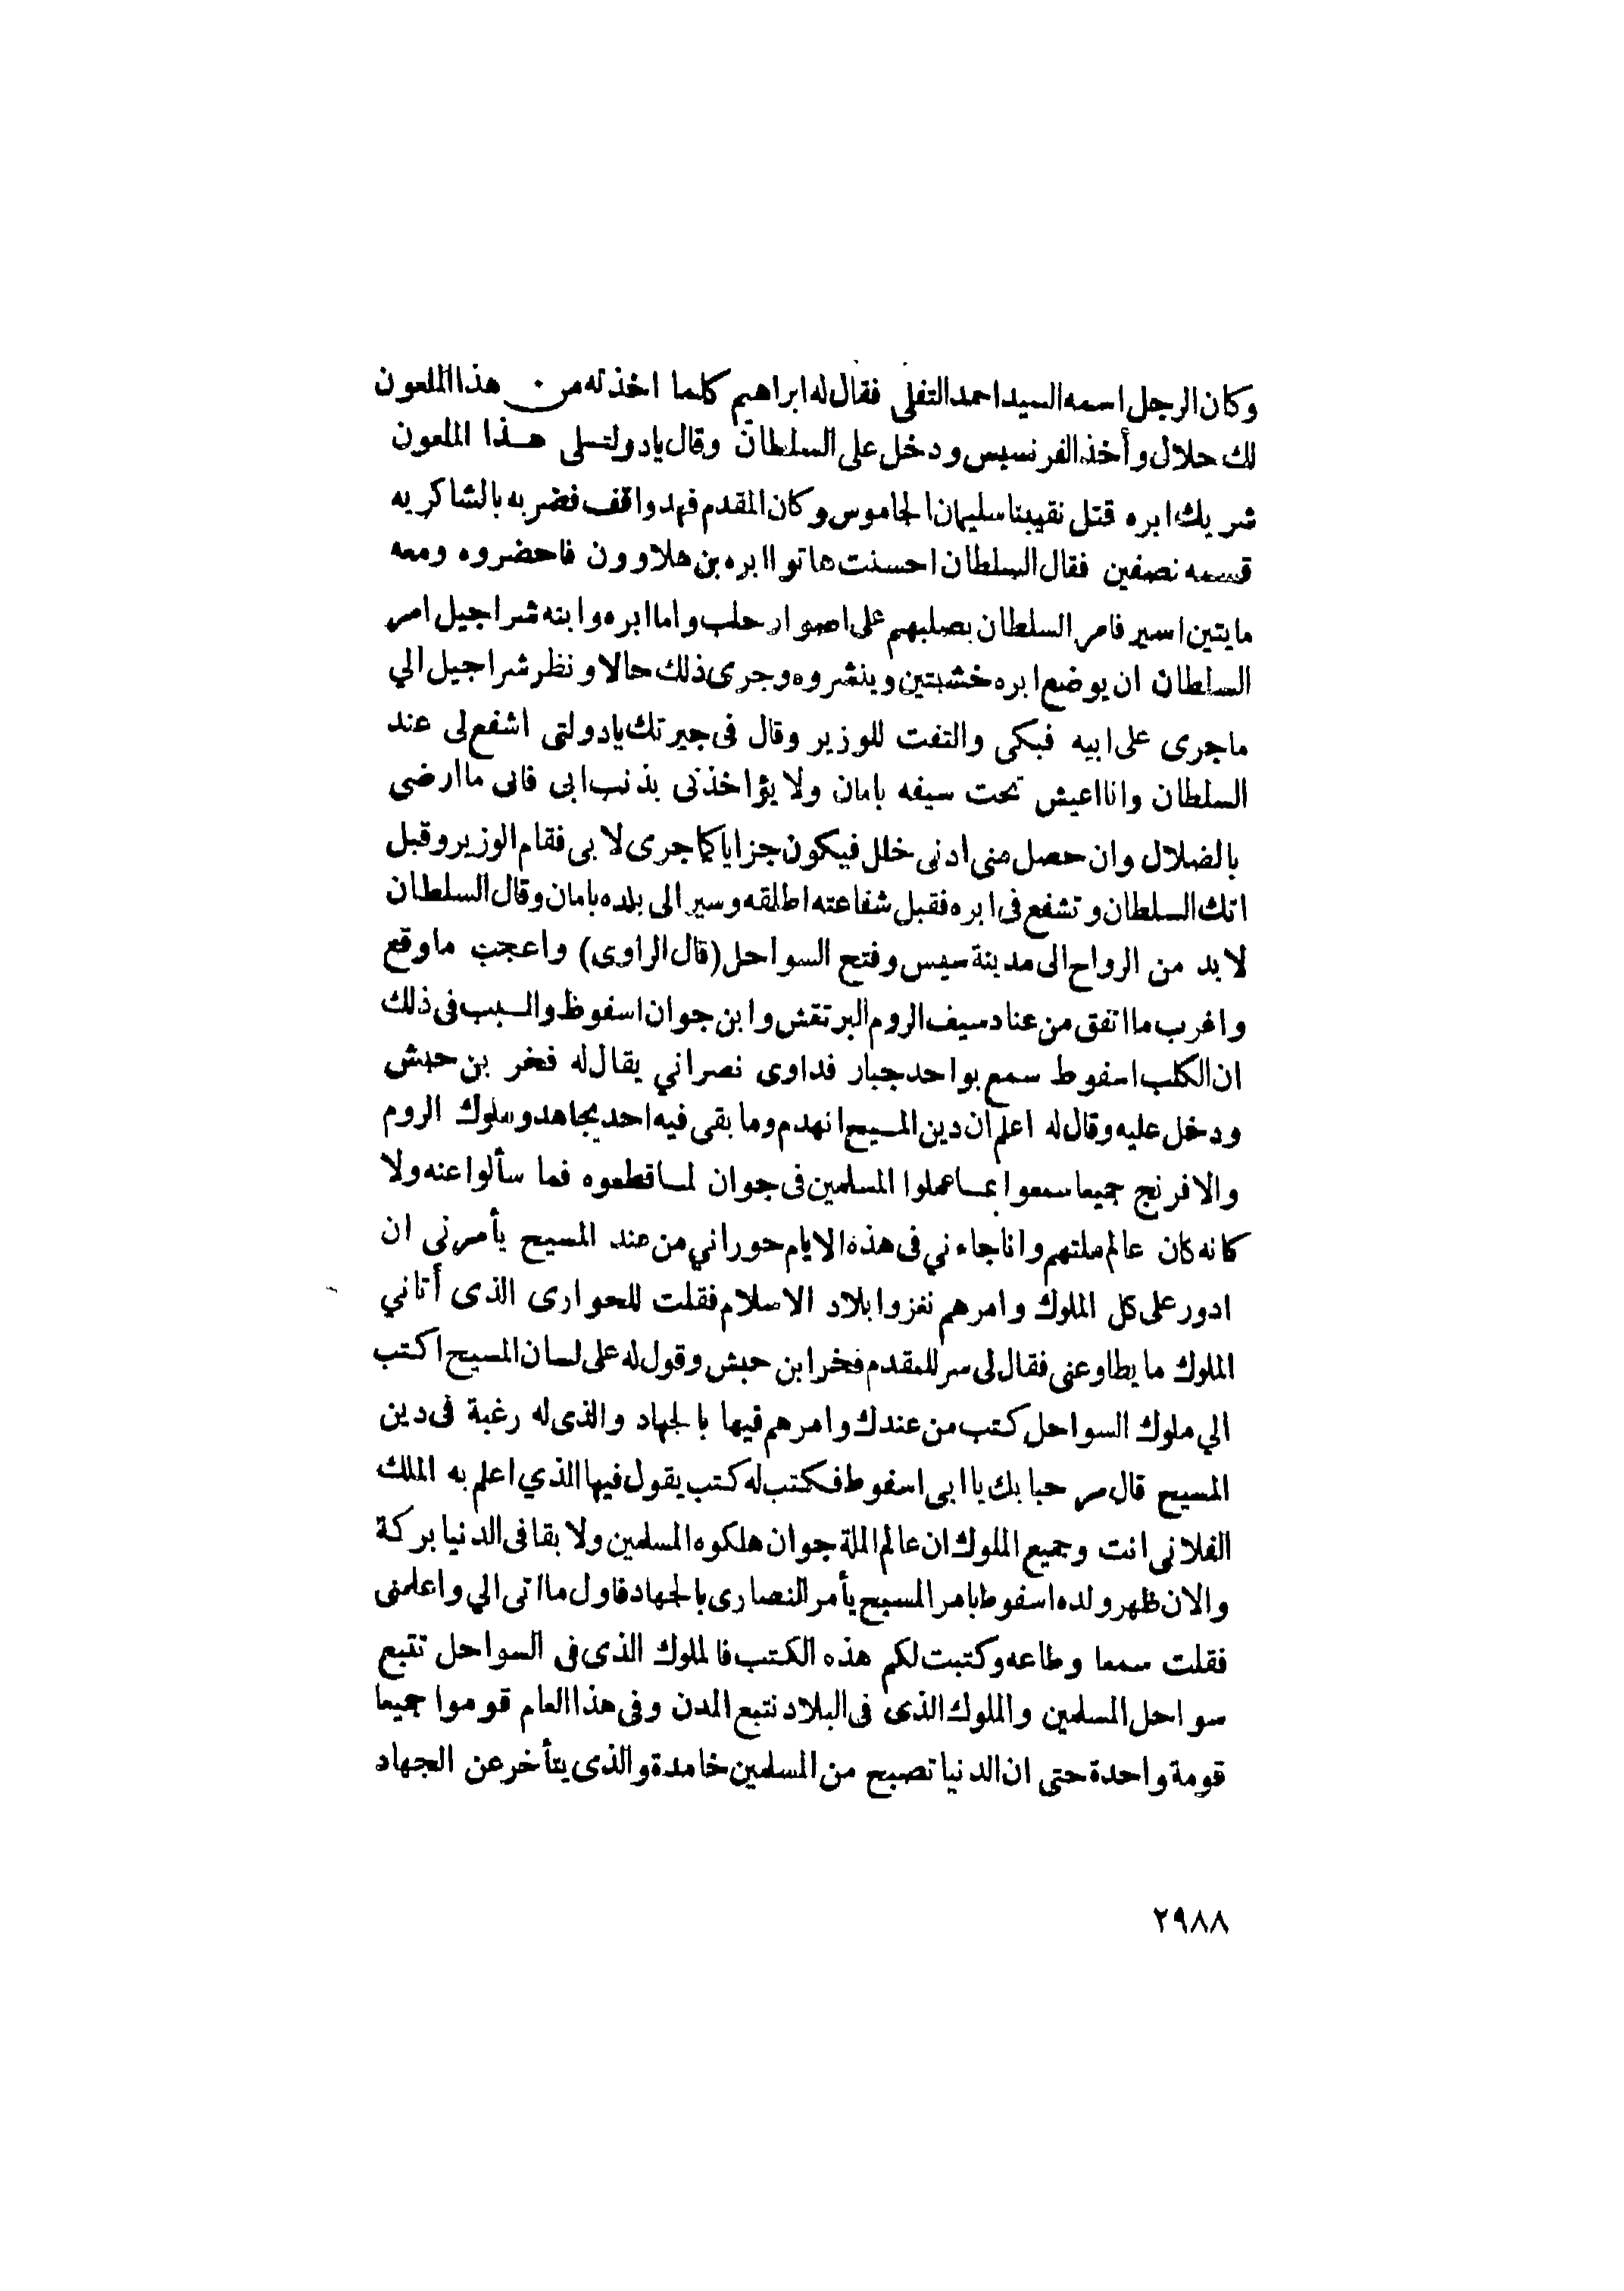 وكان الرجل اسمه السيد احمد التفلى فقال له ابراهيم كلما اخذته من هذا الملعون
لك حلال وأخذ الفرنسيس ودخل على السلطان وقال يادولتلى هذا الملعون
شريك ابره قتل نقيبنا سليمان الجاموس وكان المقدم فهد واقف فضربه بالشاكريه
قسمه نصفين فقال السلطان احسنت هاتوا ابره بن هلاوون فاحضروه ومعه
مايتين اسير فامر السلطان بصلبهم على اصوار حلب واما ابره وابنه شراجيل امر
السلطان ان يوضع ابره خشبتين وينشروه وجرى ذلك حالا ونظر شراجيل الي
ماجرى على ابيه فبكى والتفت للوزير وقال فى جيرتك يادولتى اشفع لى عند
السلطان وانا اعيش تحت سيفه بامان ولا يؤاخذنى بذنب ابى فانى ما ارضى
بالضلال وان حصل منى ادنى خلل فيكون جزايا كما جرى لابى فقام الوزير وقبل
اتك السلطان وتشفع فى ابره فقبل شفاعته اطلقه وسير الى بلده بامان وقال السلطان
لابد من الرواح الى مدينة سيس وفتح السواحل (قال الراوى) واعجب ماوقع
واغرب ما اتفق من عناد سيف الروم البرتقش وابن جوان اسفوظ والسبب فى ذلك
ان الكلب اسفوط سمع بواحد جبار فداوى نصراني يقال له فخر بن حبش
ودخل عليه وقال له اعلم ان دين المسيح انهدم وما بقى فيه احد يجاهد وملوك الروم
والافرنج جميعا سمعوا بما عملوا المسلمين فى جوان لما قطعوه فما سألوا عنه ولا
كانه كان عالم ملتهم وانا جاءني فى هذه الايام حوراني من عند المسيح يأمرنى ان
ادور على كل الملوك وامرهم نغزوا بلاد الاسلام فقلت للحوارى الذى أتاني
الملوك ما يطاوعنى فقال لى سر للمقدم فخر ابن حبش وقول له على لسان المسيح اكتب
الي ملوك السواحل كتب من عندك وامرهم فيها بالجهاد والذى له رغبة فى دين
المسيح قال مرحبا بك يا ابى اسفوط فكتب له كتب يقول فيها الذي اعلم به الملك
الفلانى انت وجميع الملوك ان عالم الملة جوان هلكوه المسلمين ولا بقا فى الدنيا بركة
والان ظهر ولده اسفوط بامر المسيح يأمر النصارى بالجهاد فاول ما اتى الي واعلمنى
فقلت سمعا وطاعه وكتبت لكم هذه الكتب فالملوك الذى فى السواحل تتبع
سواحل المسلمين والملوك الذى فى البلاد نتبع المدن وفى هذا العام قوموا جميعا
قومة واحدة حتى ان الدنيا تصبح من المسلمين خامدة والذى يتأخر عن الجهاد
٢٩٨٨